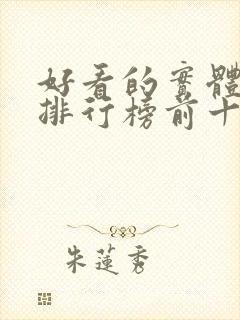 好看的實體
排行榜前十
朱蓮秀